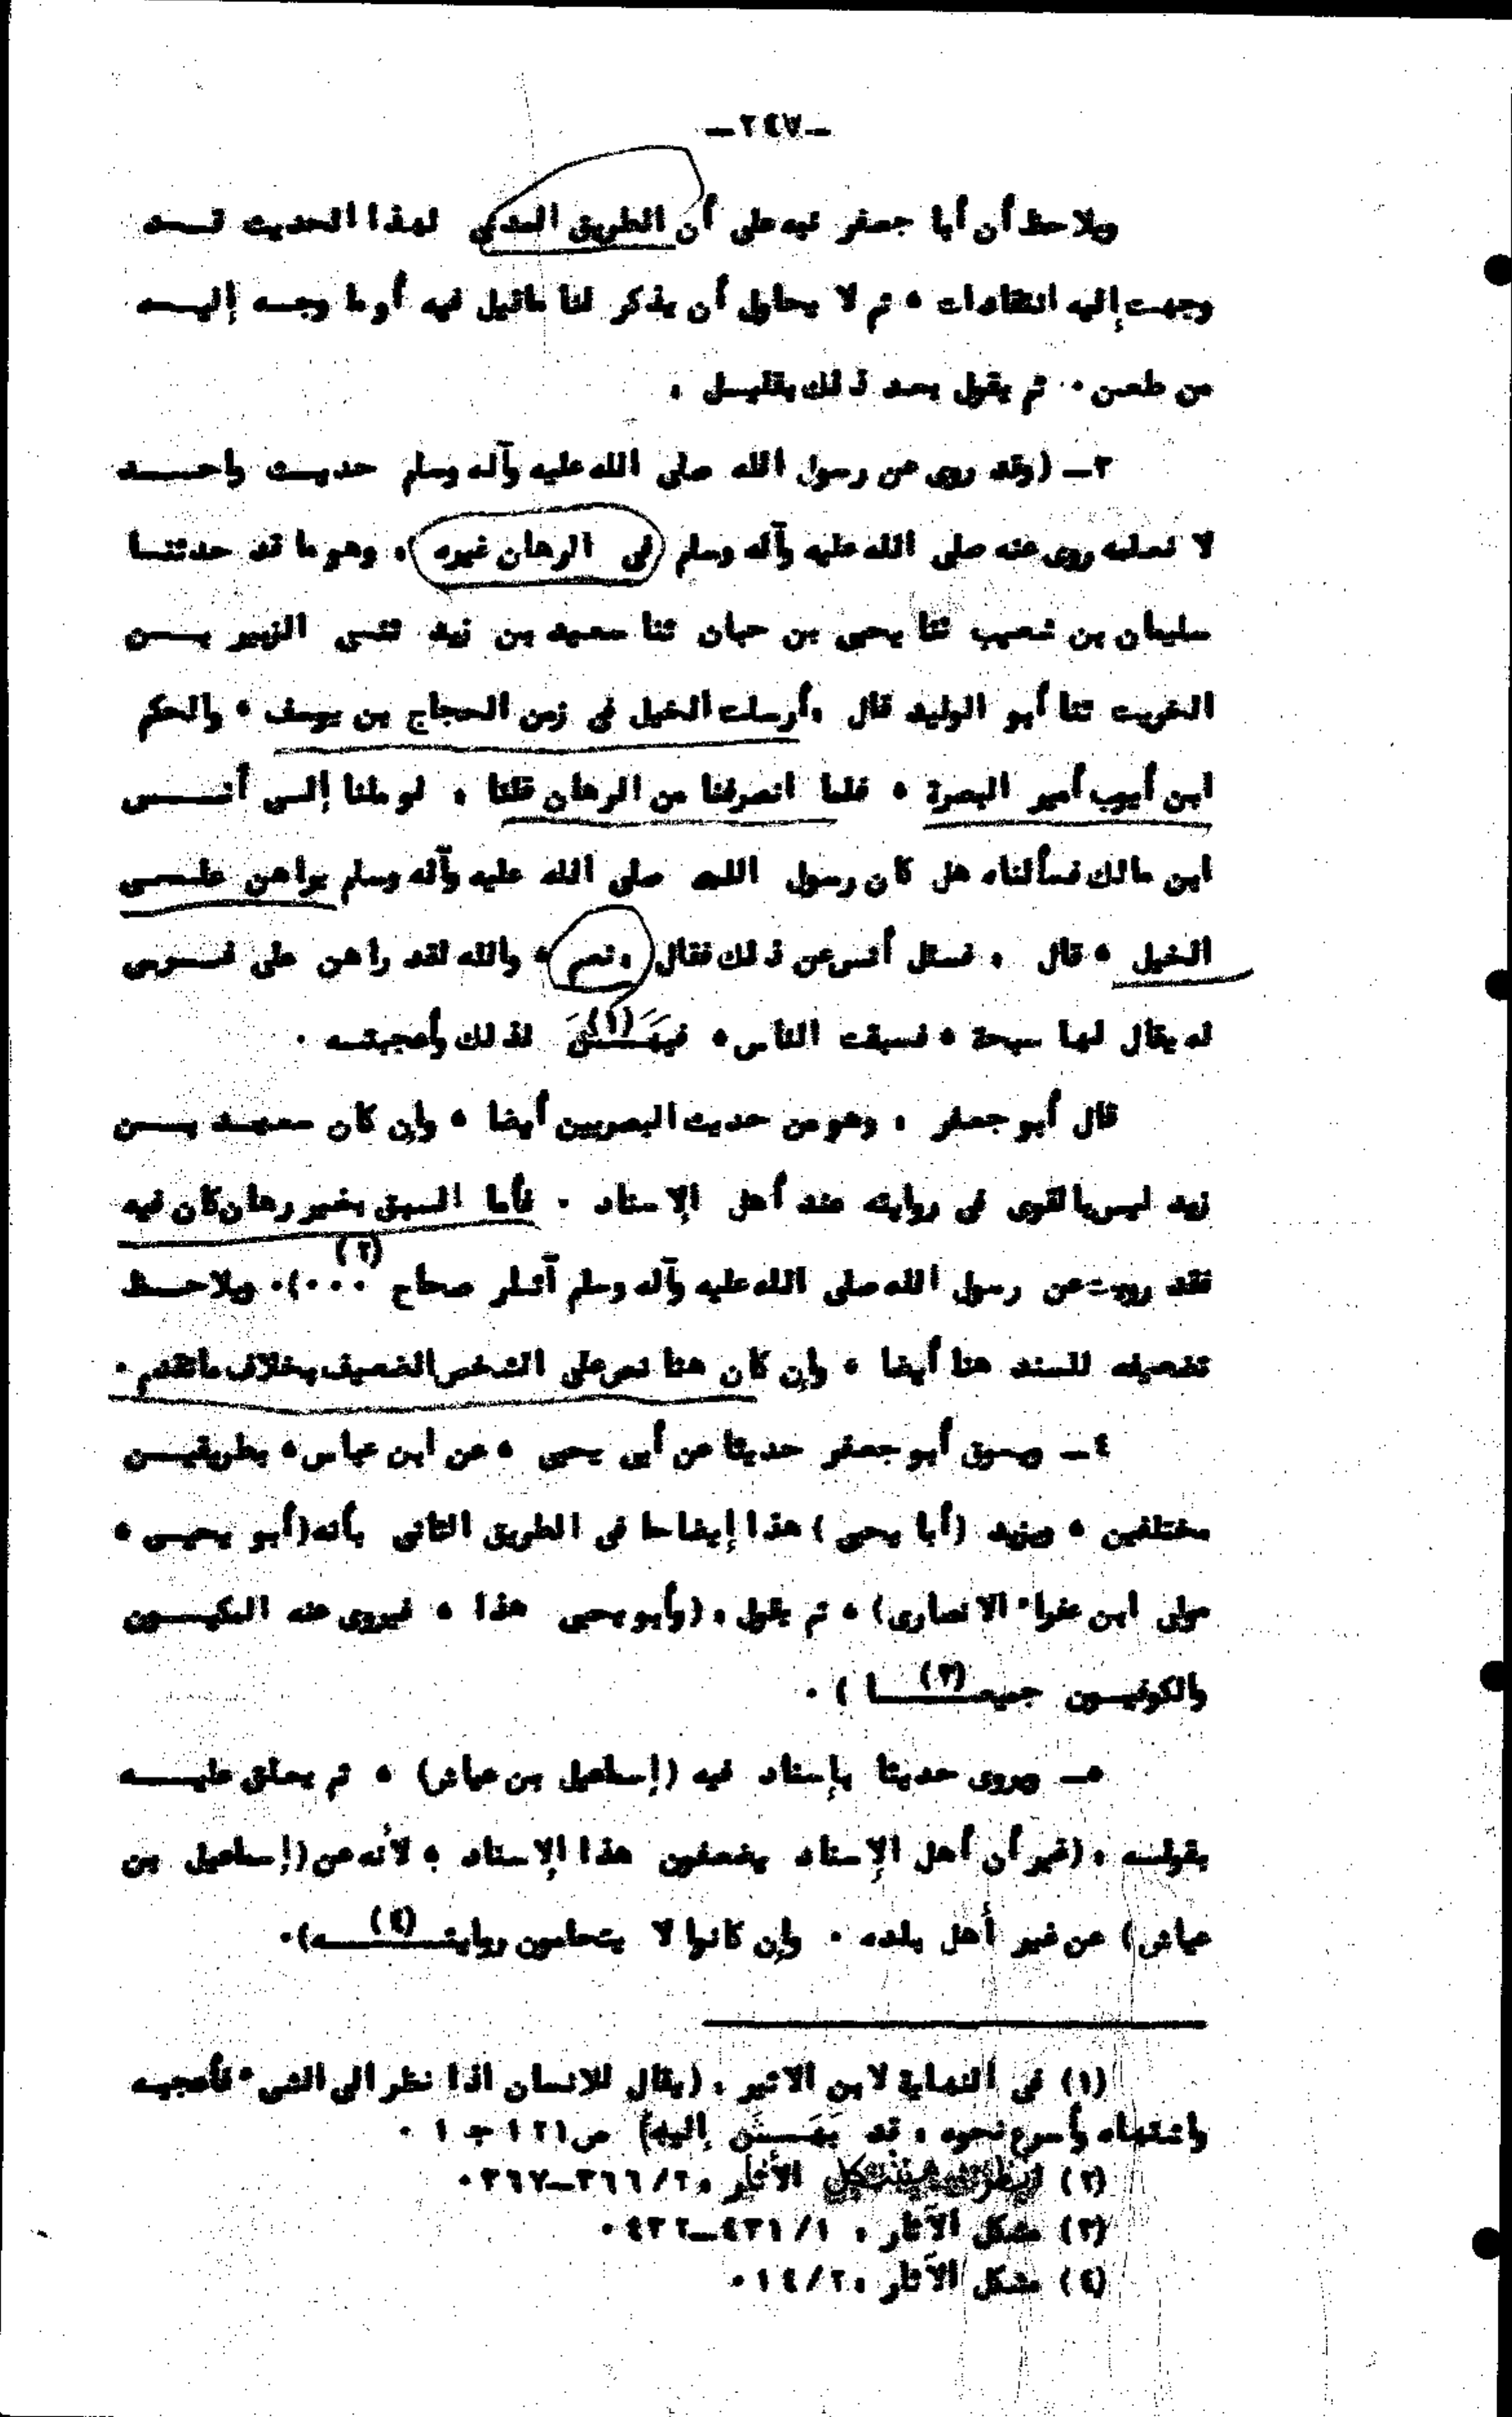 ـ٢٤٧ـ
ويلاحظ أن أبا جعفر نبه على أن الطريق المدني لهذا الحديث قد
وجهت إليه انتقادات ، ثم لا يحاول أن يذكر لنا ماقيل فيه أو ما وجه إليه
من طعن . ثم يقول بعد ذلك بقليل :
٣ـ (وقد روى عن رسول الله صلى الله عليه وآله وسلم حديث واحد
لا نعلمه روى عنه صلى الله عليه وآله وسلم في الرهان غيره ، وهو ما قد حدثنا
سليمان بن شعيب ثنا يحيى بن حيان ثنا سعيد بن زيد ثنى الزبير بن
الخريت ثنا أبو الوليد قال : أرسلت الخيل في زمن الحجاج بن يوسف ، والحكم
ابن أيوب أمير البصرة ، فلما انصرفنا من الرهان قلنا : لو ملنا إلى أنس
ابن مالك فسألناه هل كان رسول الله صلى الله عليه وآله وسلم يراهن على
الخيل ، قال : فسئل أنس عن ذلك فقال : نعم ، والله لقد راهن على فرس
له يقال لها سبحة ، فسبقت الناس ، فبَهَشَ (١) لذلك وأعجبته .
قال أبو جعفر : وهو من حديث البصريين أيضا ، وإن كان سعيد بن
زيد ليس بالقوى في روايته عند أهل الإسناد . فأما السبق بغير رهان كان فيه
فقد رويت عن رسول الله صلى الله عليه وآله وسلم آثار صحاح ...) (٢) . ويلاحظ
تضعيفه للسند هنا أيضا ، وإن كان هنا نص على الشخص الضعيف بخلاف ماتقدم .
٤ـ ويسوق أبو جعفر حديثا عن أبي يحيى ، عن ابن عباس ، بطريقين
مختلفين ، ويزيد (أبا يحيى) هذا إيضاحا في الطريق الثاني بأنه (أبو يحيى ،
مولى ابن عفراء الانصارى) ، ثم يقول : (وأبو يحيى هذا ، فيروى عنه المكيون
والكوفيون جميعا (٣) ) .
٥ـ ويروى حديثا بإسناد فيه (إسماعيل بن عياش) ، ثم يعلق عليه
بقوله : (غير أن أهل الإسناد يضعفون هذا الإسناد ؛ لأنه عن (إسماعيل بن
عياش) عن غير أهل بلده . وإن كانوا لا يتحامون روايته (٤) ).
(١) في النهاية لابن الاثير : (يقال للانسان اذا نظر الى الشيء فأعجبه
واشتهاه وأسرع نحوه : قد بَهَشَ إليه) ص ١٦٦ جـ ١ .
(٢) مشكل الآثار : ٢/ ٣٦٦ـ٣٦٧ .
(٣) مشكل الآثار : ١/ ٤٣١ـ٤٣٢ .
(٤) مشكل الآثار : ٢/ ١٤ .